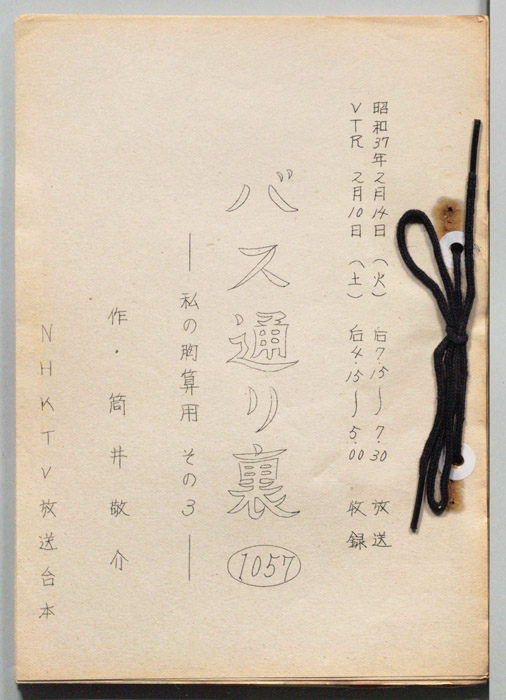 昭和37年2月14日（火）后7.15〜7.30 放送
VTR 2月10日（土）后4.15〜5.00 收録
バス通り裏 1057
― 私の胸算用 その3 ―
作・筒井敬介
NHKTV放送台本